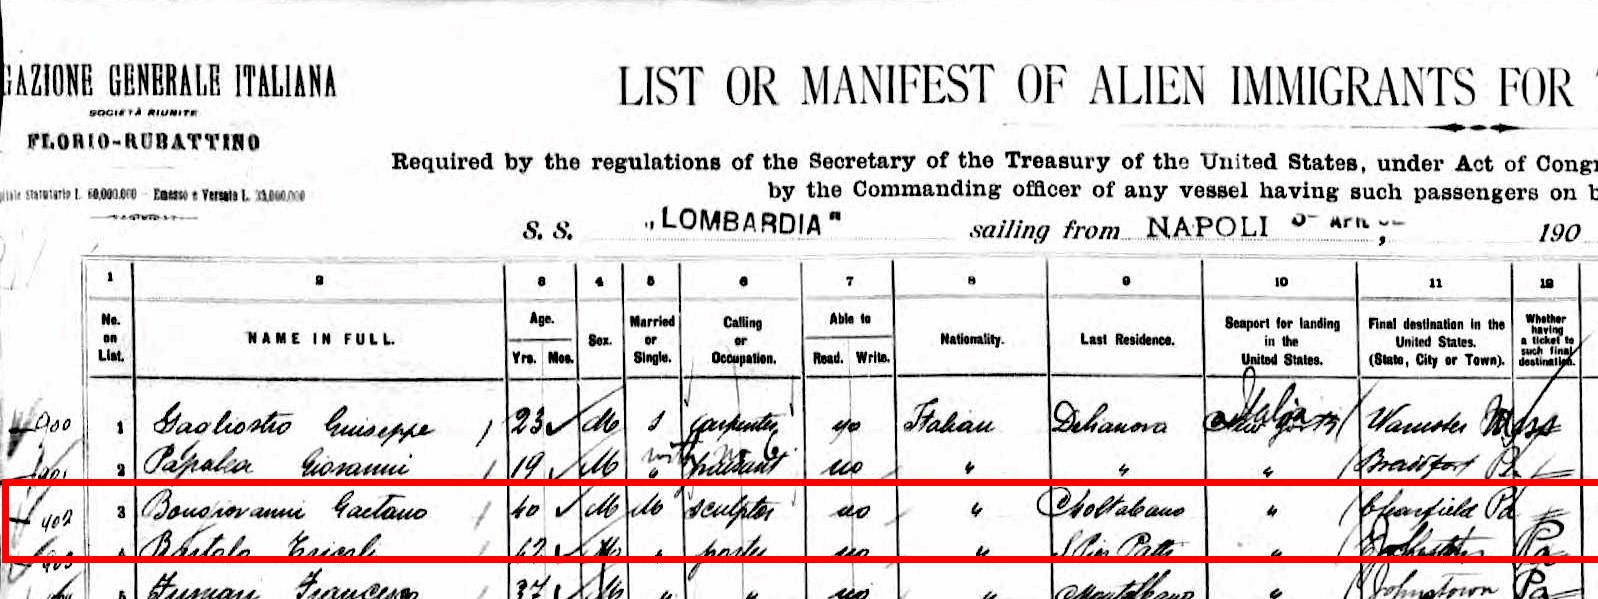 GAZIONE GENERALE ITALIANA
SOCIETÀ RIUNITE
FLORIO-RUBATTINO
Statutario L. 60,000,000 — Emesso e Versato L. 33,000,000
LIST OR MANIFEST OF ALIEN IMMIGRANTS FOR
Required by the regulations of the Secretary of the Treasury of the United States, under Act of Cong
by the Commanding officer of any vessel having such passengers on b
S. S. „LOMBARDIA" sailing from NAPOLI , 190
1 2 3 4 5 6 7 8 9 10 11 12
No. on List. NAME IN FULL. Age. Yrs. Mos. Sex. Married or Single. Calling or Occupation. Able to Read. Write. Nationality. Last Residence. Seaport for landing in the United States. Final destination in the United States. (State, City or Town). Whether having a ticket to such final destination.
1 Gagliostro Giuseppe 23 M S carpenter Italian
2 Papalea Giovanni 19 M " peasant no " " " Bradford Pa
402 3 Bongiovanni Gaetano 40 M M sculptor no " " Clearfield Pa
4 42 M " no " " Pa
5 Francesco 37 M " " no " Montalbano " Johnstown Pa